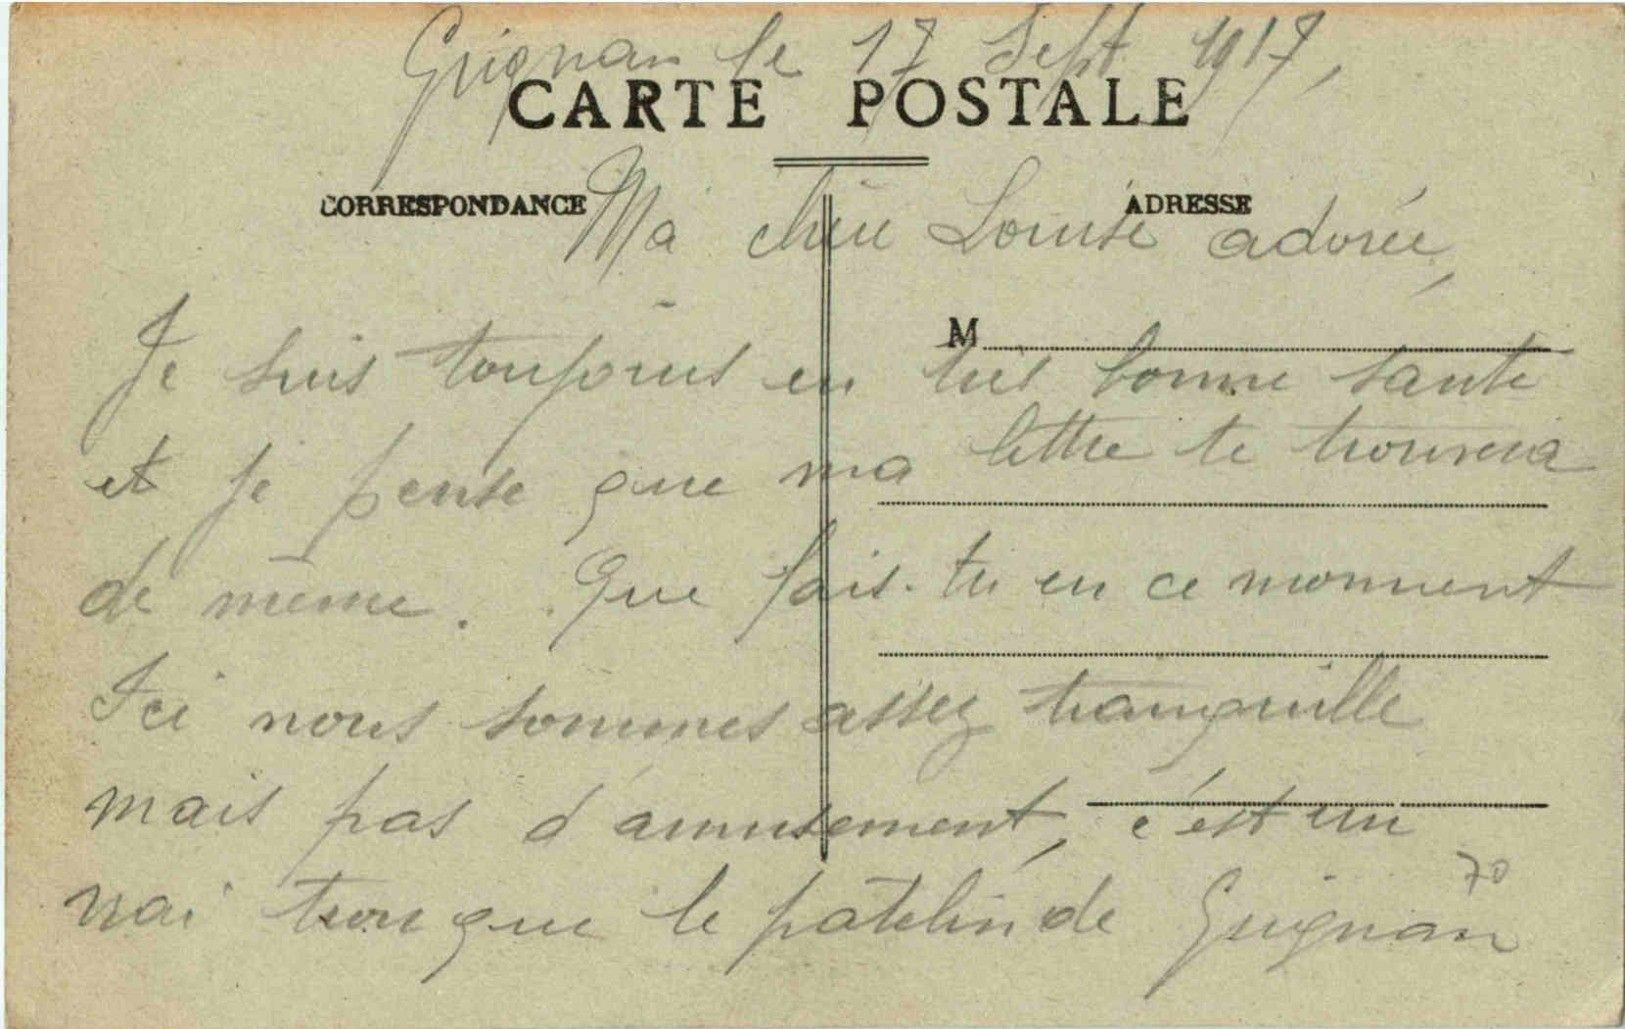 Grignan le 17 Sept. 1917,
CARTE POSTALE
CORRESPONDANCE
ADRESSE
Ma chère Louise adorée,
M
Je suis toujours en très bonne santé
et je pense que ma lettre te trouvera
de même. Que fais-tu en ce moment
Ici nous sommes assez tranquille
mais pas d'amusement, c'est un
vrai trou que le patelin de Grignan
70